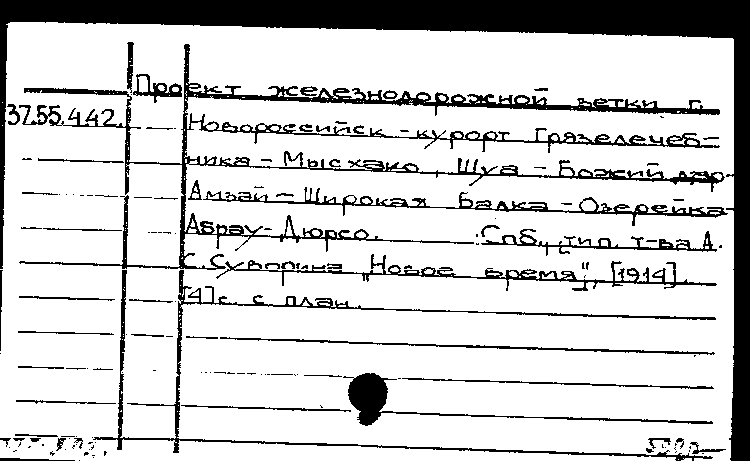 Проект железнодорожной ветки г.
37.55.442. Новороссийск - курорт Грязелечеб-
ница - Мысхако, Шуа - Божий дар -
Амзай - Широкая Балка - Озерейка -
Абрау-Дюрсо. Спб., тип. т-ва А.
С. Суворина "Новое время", [1914].
[4] с. с план.